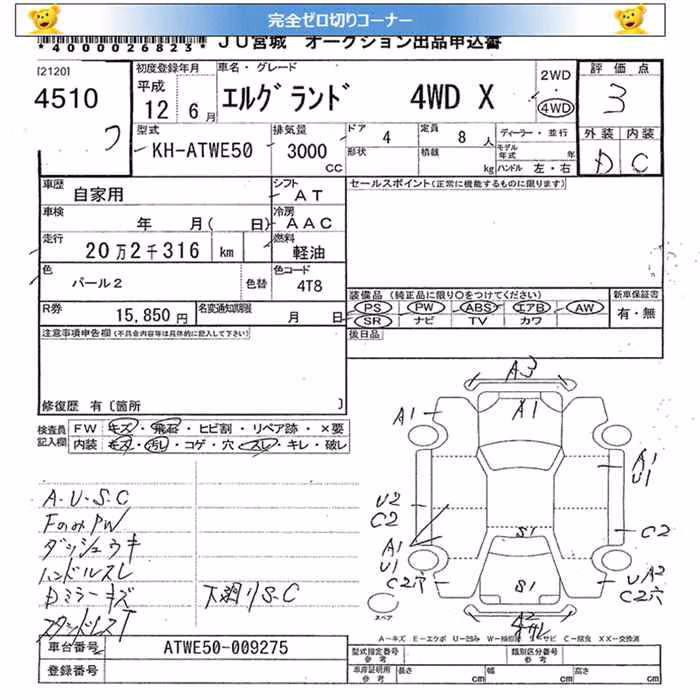 完全ゼロ切りコーナー
*4000026823* JU宮城 オークション出品申込書
[2120]
4510
初度登録年月
平成
12年 6月
車名・グレード
エルグランド 4WD X
2WD
4WD
評価点
3
外装 内装
D C
型式
KH-ATWE50
排気量
3000
CC
ドア
4
定員
8人
形状
積載
kg
ディーラー・並行
モデル年式 年
ハンドル 左・右
車歴
自家用
シフト
AT
セールスポイント(正常に機能するものに限ります)
車検
年 月( 日)
冷房
AAC
走行
20万2千316 km
燃料
軽油
色
パール2
色替
色コード
4T8
R券
15,850円
名変通知期限
月 日
装備品(純正品に限り○をつけてください)
PS PW ABS エアB AW
SR ナビ TV カワ
新車保証書
有・無
後日品
注意事項申告欄(不具合内容等は具体的に記入して下さい)
修復歴 有〔箇所 〕
検査員記入欄
FW キズ・飛石・ヒビ割・リペア跡・×要
内装 キズ・汚れ・コゲ・穴・スレ・キレ・破レ
A・U・S・C
FのみPW
ダッシュウキ
ハンドルスレ
Dミラーキズ
下廻りS.C
A3
A1
A1
A1
U1
U2
C2
C2
A1
U1
C2穴
S1
S1
UA2
C2穴
A2
スペア
A－キズ E－エクボ U－凹み W－補修跡 S－サビ C－腐食 XX－交換済
車台番号
ATWE50-009275
登録番号
型式指定番号
参考
類別区分番号
参考
車庫証明用
参考
長さ cm
幅 cm
高さ cm